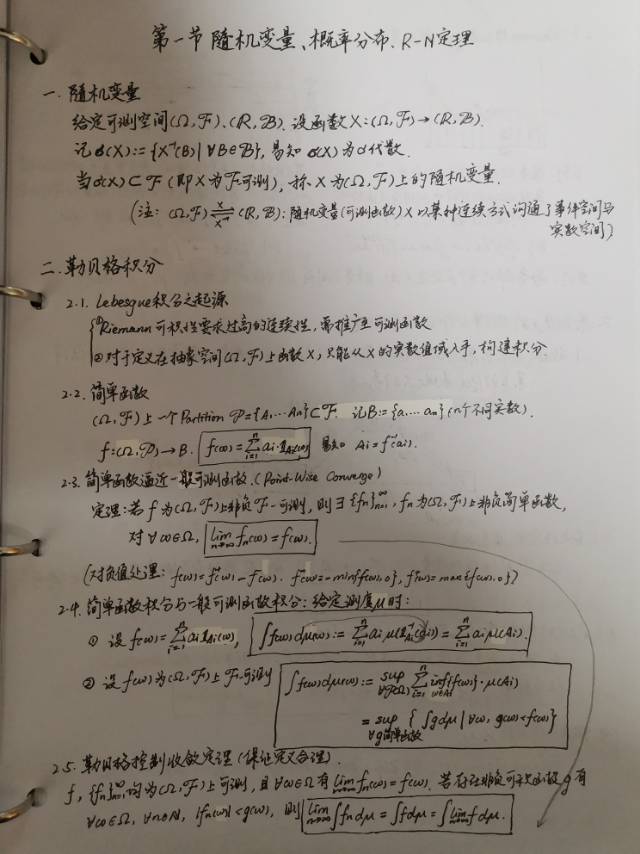 第一节 随机变量、概率分布、R-N定理
一. 随机变量
给定可测空间(Ω,ℱ)、(R,ℬ). 设函数X:(Ω,ℱ)→(R,ℬ).
记σ(X):={X⁻¹(B)|∀B∈ℬ}, 易知σ(X)为σ代数.
当σ(X)⊂ℱ(即X为ℱ-可测), 称X为(Ω,ℱ)上的随机变量.
(注: (Ω,ℱ) ⇌ (R,ℬ): 随机变量(可测函数)X以某种连续方式沟通了事件空间与
实数空间)
二. 勒贝格积分
2.1. Lebesgue积分之起源
①Riemann可积性要求过高的连续性, 需推广至可测函数
②对于定义在抽象空间(Ω,ℱ)上函数X, 只能从X的实数值域入手, 构建积分
2.2. 简单函数
(Ω,ℱ)上一个Partition 𝒫={A₁…Aₙ}⊂ℱ. 记B:={a₁…aₙ}(n个不同实数).
f:(Ω,𝒫)→B. f(ω)=∑ⁿᵢ₌₁aᵢ·1_Aᵢ(ω) 易知 Aᵢ=f⁻¹(aᵢ).
2.3. 简单函数逼近一般可测函数.(Point-Wise Converge)
定理: 若f为(Ω,ℱ)上非负ℱ-可测, 则∃{fₙ}^∞ₙ₌₁, fₙ为(Ω,ℱ)上非负简单函数,
对∀ω∈Ω, lim n→∞ fₙ(ω)=f(ω).
(对负值处理: f(ω)=f⁺(ω)-f⁻(ω). f⁻(ω)=-min{f(ω),0}, f⁺(ω)=max{f(ω),0})
2.4. 简单函数积分与一般可测函数积分: 给定测度μ时:
① 设f(ω)=∑ⁿᵢ₌₁aᵢ1_Aᵢ(ω), ∫f(ω)dμ(ω):=∑ⁿᵢ₌₁aᵢμ(1⁻¹_Aᵢ(aᵢ))=∑ⁿᵢ₌₁aᵢμ(Aᵢ).
② 设f(ω)为(Ω,ℱ)上ℱ-可测 ∫f(ω)dμ(ω):=sup ∑ⁿᵢ₌₁ inf ω∈Aᵢ {f(ω)}·μ(Aᵢ)
=sup ∀g简单函数 {∫gdμ|∀ω, g(ω)<f(ω)}
2.5. 勒贝格控制收敛定理(保证定义合理).
f, {fₙ}^∞ₙ₌₁均为(Ω,ℱ)上可测, 且∀ω∈Ω有lim n→∞ fₙ(ω)=f(ω). 若存在非负可积函数g有
∀ω∈Ω, ∀n∈N, |fₙ(ω)|<g(ω), 则 lim n→∞ ∫fₙdμ=∫fdμ=∫lim n→∞ fdμ.